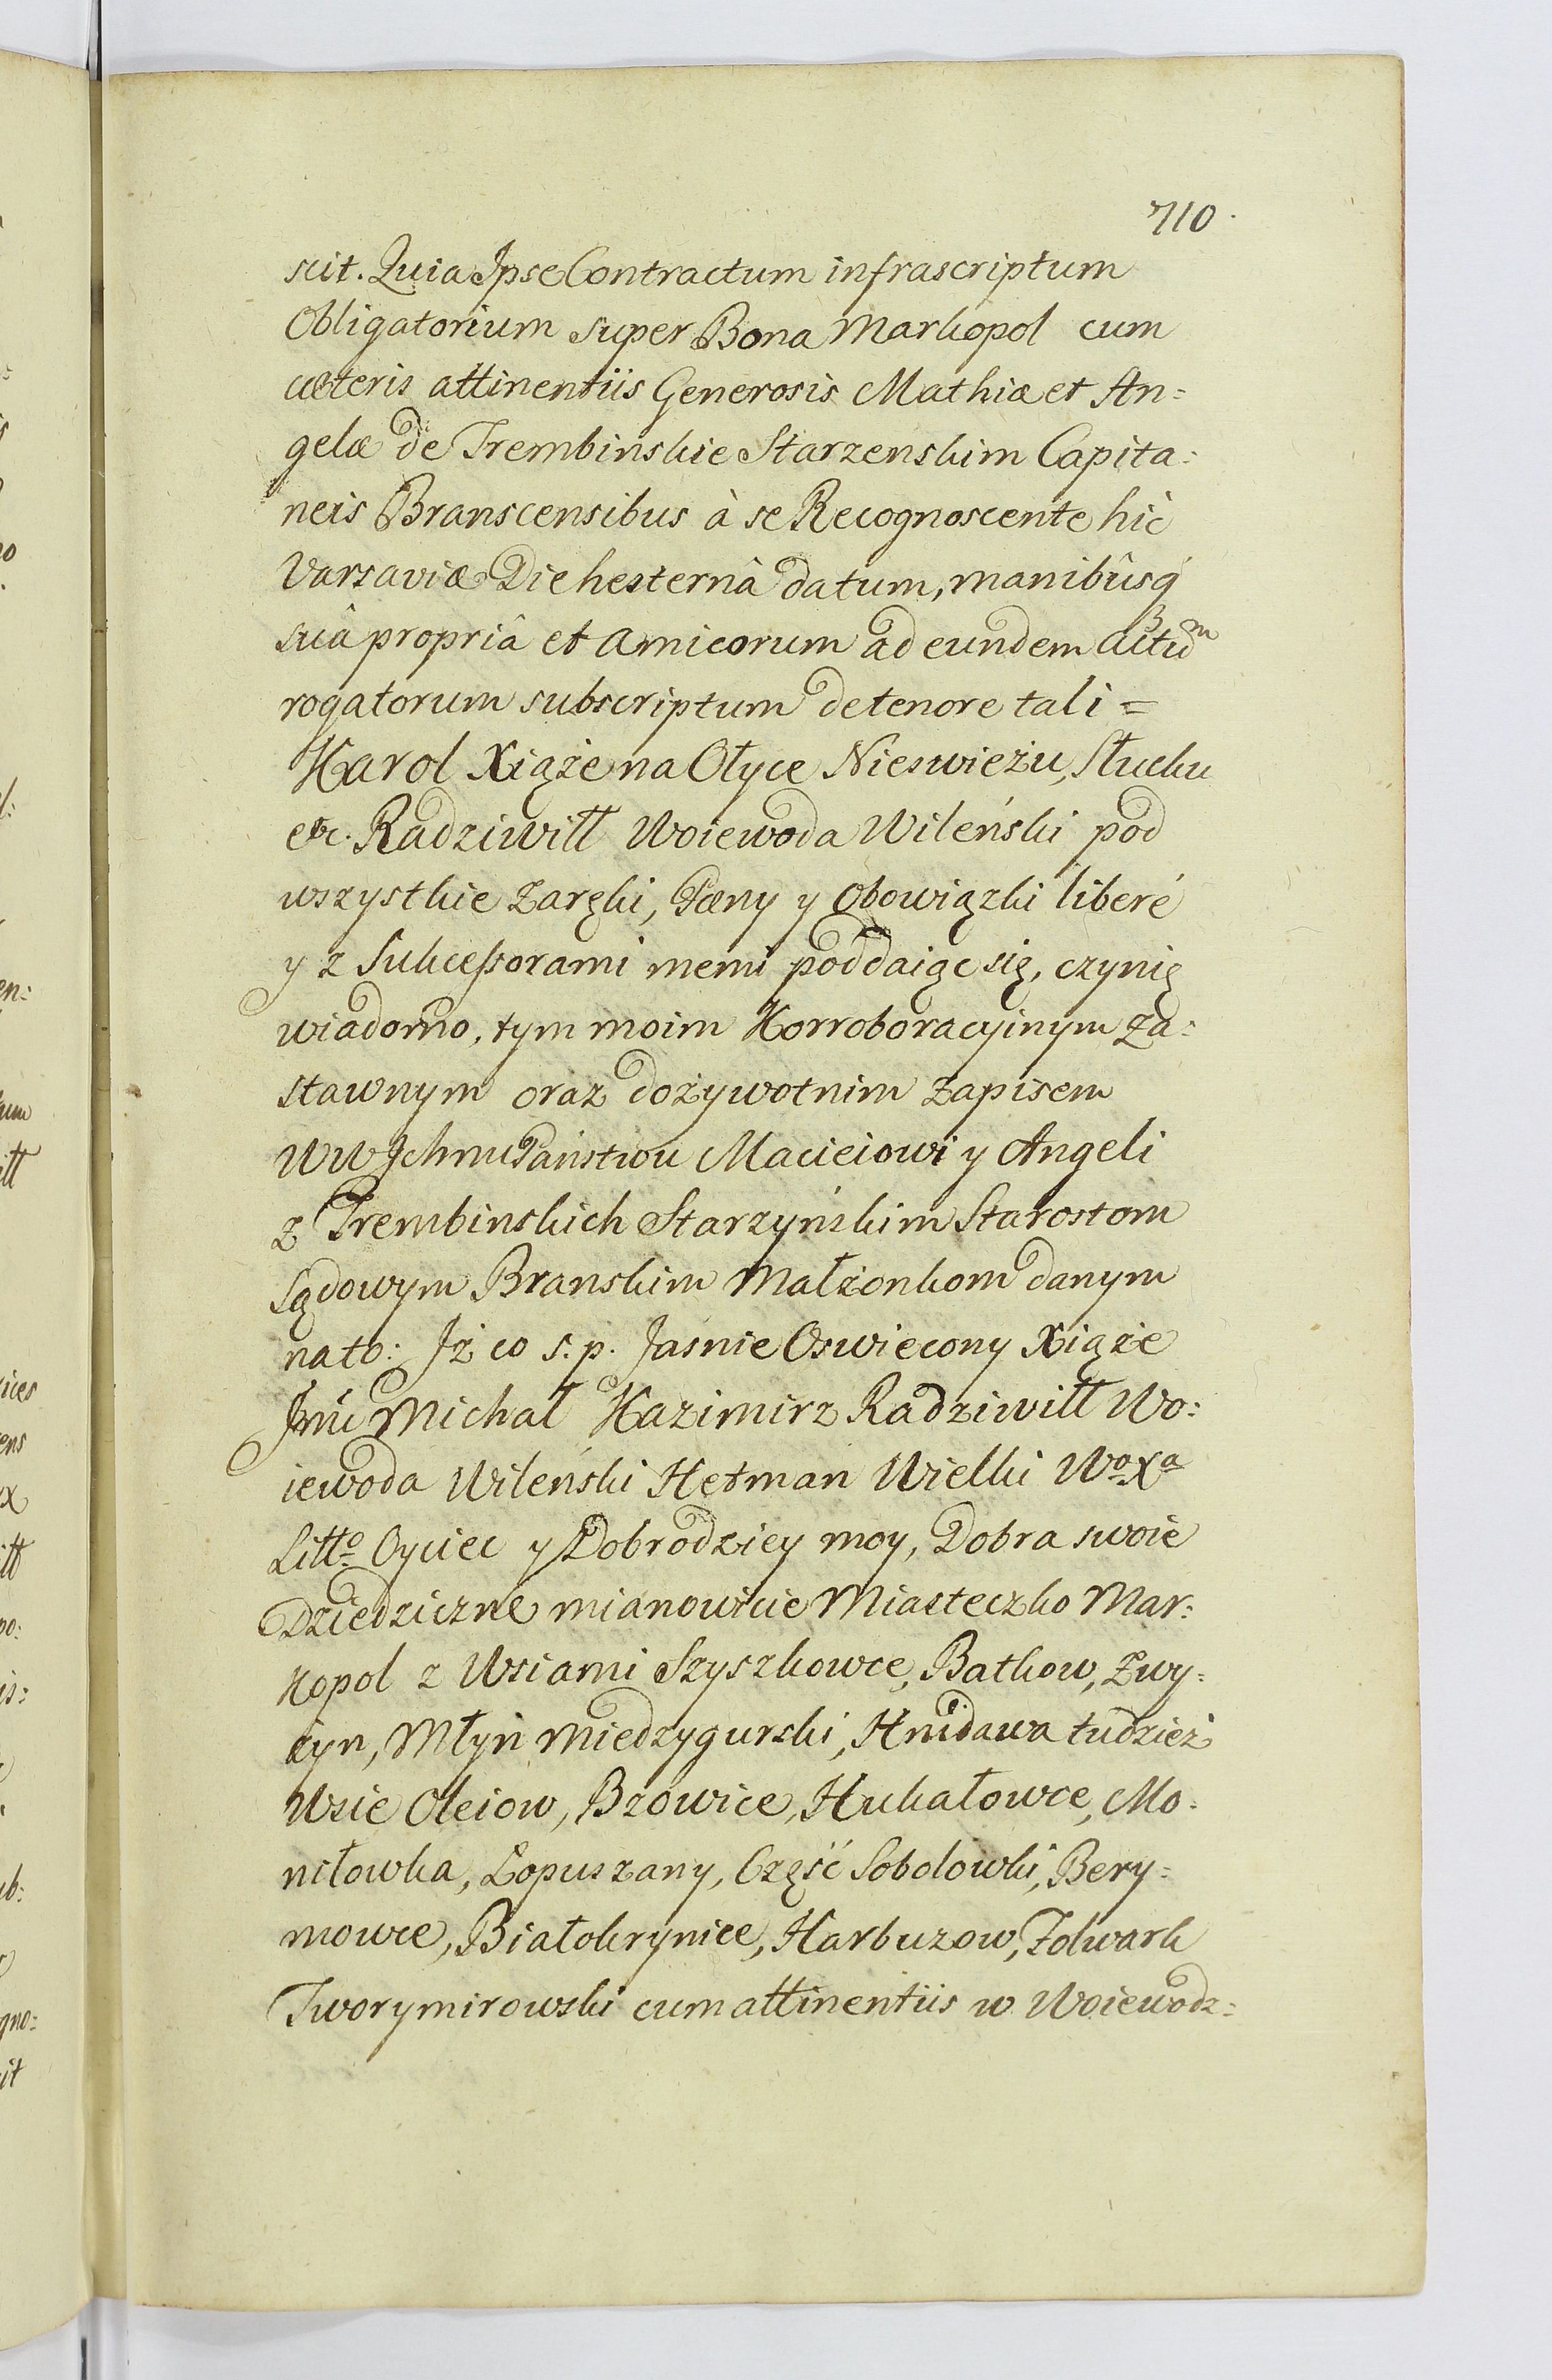 710.
scit. Quia Ipse Contractum infrascriptum
Obligatorium super Bona Markopol cum
cæteris attinentiis Generosis Mathiæ et An=
gelæ de Trembinskie Starzenskim Capita:
neis Branscensibus à se Recognoscente hic
Varsaviæ Die hesternâ datum, manibûsq́
suâ propriâ et Amicorum ad eundem actũm
rogatorum subscriptum de tenore tali =
Karol Xiąże na Ołyce Nieswieżu, Słucku
etc. Radziwiłł Woiewoda Wileński pod
wszystkie Zaręki, Pæny y Obowiązki liberé
y z Sukceßorami memi poddaiąc się, czynię
wiadomo, tym moim Korroboracyinym Za:
stawnym oraz dożywotnim Zapisem
WW Ichmc Państwu Macieiowi y Angeli
z Trembinskich Starzyńskim Starostom
Sądowym Branskim Małżonkom danym
na to: Jż co s. p. Jasnie Oswiecony Xiąże
Jmć Michał Kazimirz Radziwiłł Wo:
iewoda Wileński Hetman Wielki Wo Xa
Litto Oyciec y Dobrodziey moy, Dobra swoie
Dziedziczne mianowicie Miasteczko Mar:
kopol z Wsiami Szyszkowce, Batkow, Zwy=
żyn, Młyn Miedzygurski, Hnidawa tudzież
Wsie Oleiow, Bzowice, Hukałowce, Mo:
niłowka, Łopuszany, Część Sobolowki, Bery=
mowce, Białokrynice, Harbuzow, Folwark
Tworymirowski cum attinentiis w Woiewodz=